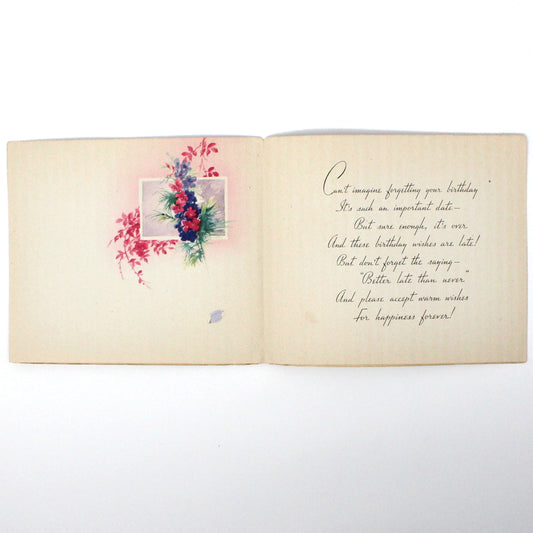 Can't imagine forgetting your birthday
It's such an important date—
But sure enough, it's over
And these birthday wishes are late!
But don't forget the saying—
"Better late than never"
And please accept warm wishes
For happiness forever!